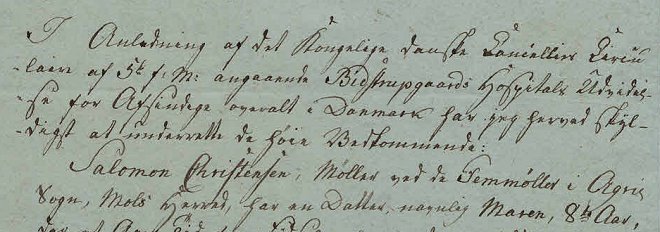 I Anledning af det Kongelige danske Cancellies Circu
-laire af 5te f: M: angaaende Bidstrupgaards Hospitals Udvidel-
-se for Afsindige overalt i Danmark har jeg herved skyl-
-digst at underrette de høie Vedkommende:
Salomon Christensen, Møller ved de Femmøller i Agrie
Sogn, Mols Herred, har en Datter, navnlig Maren, 8½ Aar,